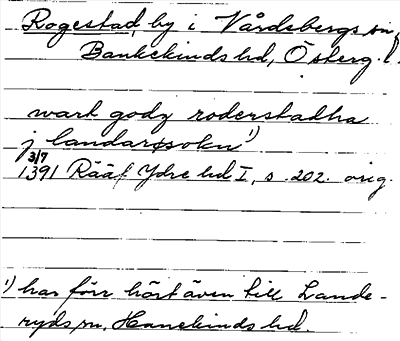 Rogestad, by i Vårdsbergs sn,
Bankekinds hd, Österg. l.
wart godz roderstadha
j landarsokn 1)
3/7
1391 Rääf Ydre hd I, s. 202. orig.
1) har förr hört även till Lande-
ryds sn. Hanekinds hd.